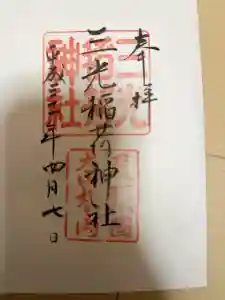 奉拝
三光稲荷神社
平成三十一年四月七日
三光稲荷神社